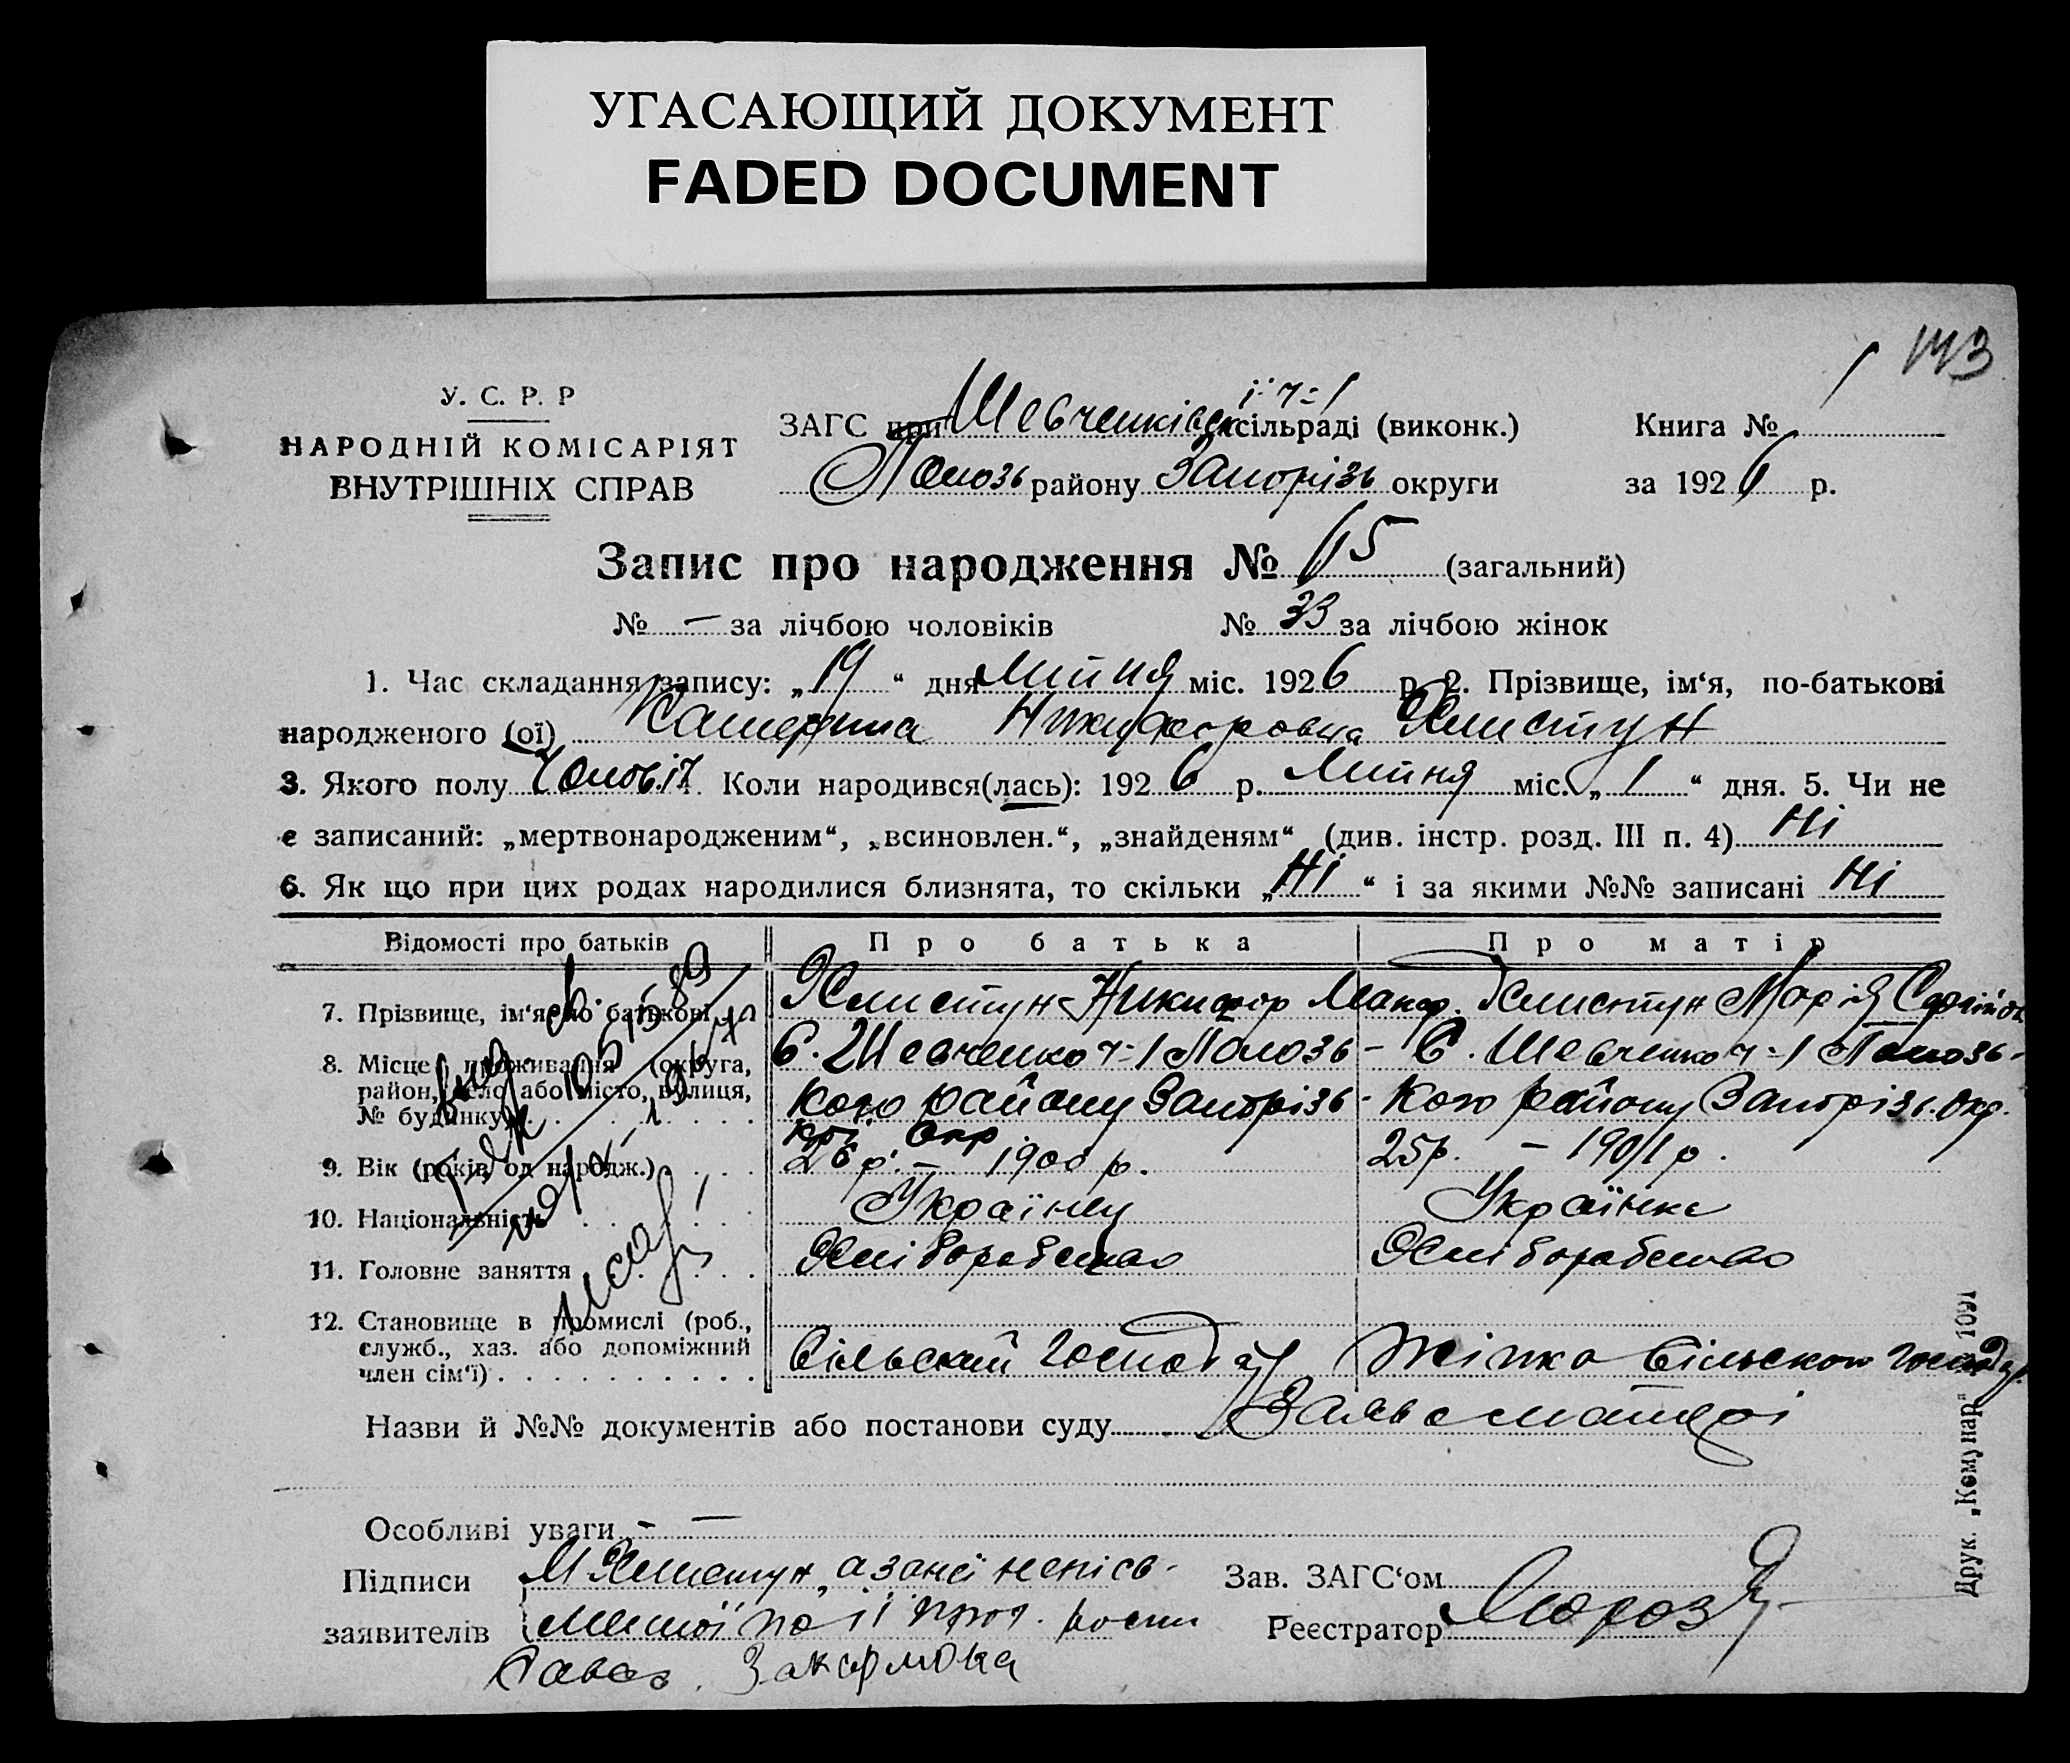 УГАСАЮЩИЙ ДОКУМЕНТ
FADED DOCUMENT
143
У. С. Р. Р
НАРОДНІЙ КОМІСАРІЯТ
ВНУТРІШНІХ СПРАВ
ЗАГС при Шевченківск. ій ч=1 сільраді (виконк.)
Полозь району Запорізь округи
Книга № 1
за 1926 р.
Запис про народження № 65 (загальний)
№ — за лічбою чоловіків № 33 за лічбою жінок
1. Час складання запису: „19“ дня Липня міс. 1926 р. 2. Прізвище, ім‘я, по-батькові
народженого (ої) Катерина Никифоровна Хлистун
3. Якого полу Чоловіч. Коли народився(лась): 1926 р. Липня міс. „1“ дня. 5. Чи не
є записаний: „мертвонародженим“, „всиновлен.“, „знайденям“ (див. інстр. розд. III п. 4) Ні
6. Як що при цих родах народилися близнята, то скільки „Ні“ і за якими №№ записані Ні
Відомості про батьків Про батька Про матір
7. Прізвище, ім‘я, по батькові Хлистун Никифор Хлистун Марія
8. Місце проживання (округа,
район, село або місто, вулиця,
№ будинку)
С. Шевченко ч=1 Полозь-
кого району Запорізь-
кої Окр.
С. Шевченко ч=1 Полозь-
кого району Запорізь. Окр.
9. Вік (років, од народж.) 26 р. — 1900 р. 25 р. — 1901 р.
10. Національність Українец Українка
11. Головне заняття Хліборобство Хліборобство
12. Становище в промислі (роб.,
служб., хаз. або допоміжний
член сім‘ї)
Сільский господар Жінка сільского господар.
Назви й №№ документів або постанови суду Заява матері
Особливі уваги - —
Підписи М Хлистун, а за неї непісь-
заявителів менної по її прох. росп
Зав. ЗАГС‘ом
Реєстратор Мороз
Друк. „Комунар“ 1091